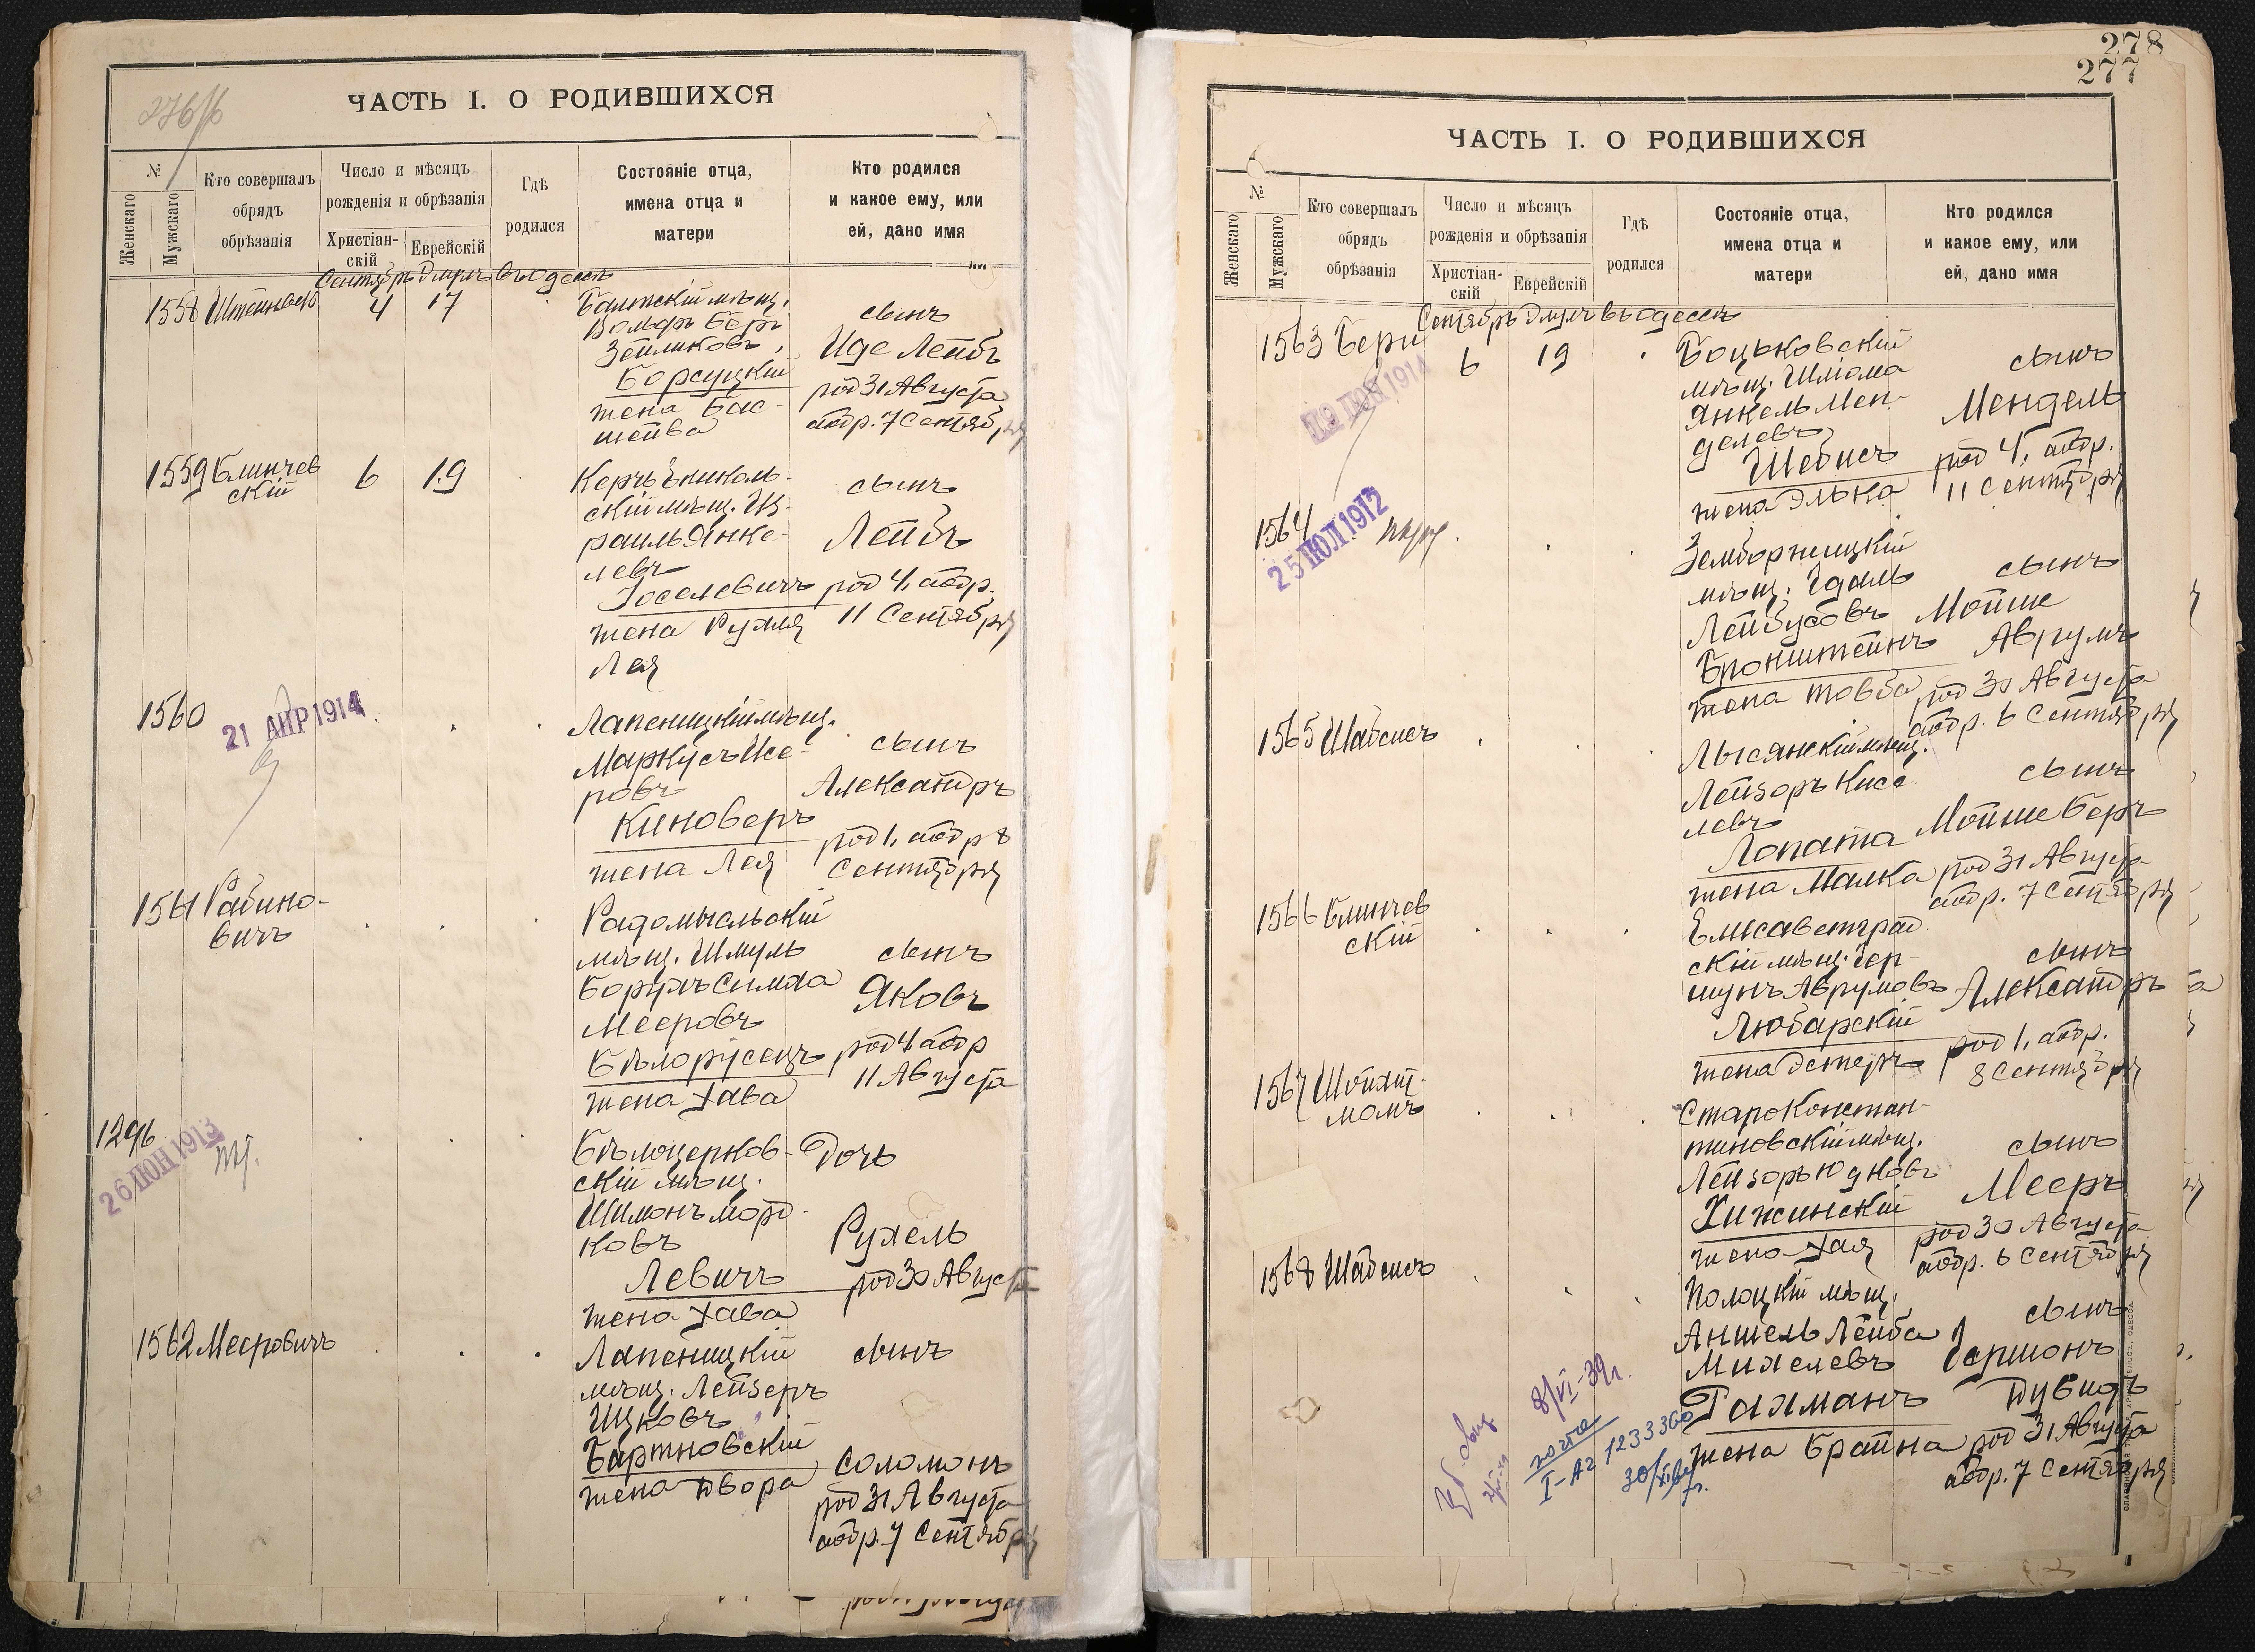 276/б
ЧАСТЬ I. О РОДИВШИХСЯ
№
Женскаго
Мужскаго
Кто совершалъ
обрядъ
обрѣзанія
Число и мѣсяцъ
рожденія и обрѣзанія
Христіан-
скій
Еврейскій
Гдѣ
родился
Состояніе отца,
имена отца и
матери
Кто родился
и какое ему, или
ей, дано имя
Сентябрь Элулъ въ Одессѣ
1558
4 17
Балтскій мѣщ.
Вольфъ Беръ
Зейликовъ
Борсуцкій
жена Бас-
шейва
сынъ
Иде Лейбъ
род 31 Августа
абр. 7 Сентября
1559 Блинчев
скій
6 19
Керчь Ениколь-
скій мѣщ. Из-
раиль Янке-
левъ
Іоселевичъ
жена Рухля
Лея
сынъ
Лейбъ
род 4, абр.
11 Сентября
1560
21 АПР 1914
Лапеницкій мѣщ.
Маркусъ Ице-
ровъ
Киноверъ
жена Лея
сынъ
Александръ
род 1, абр 8
Сентября
1561 Рабино-
вичъ
Радомысльскій
мѣщ. Шмуль
Борухъ Симха
Мееровъ
Бѣлорусецъ
жена Хава
сынъ
Яковъ
род 4 абр
11 Августа
1296
26 ІЮН 1913
Бѣлоцерков-
скій мѣщ.
Шимонъ Морд-
ковъ
Левичъ
жена Хава
Дочь
Рухель
род 30 Августа
1562 Мееровичъ
Лапеницкій
мѣщ. Лейзеръ
Ицковъ
Бартновскій
жена Двора
сынъ
Соломонъ
род 31 Августа
абр. 7 Сентября
278
277
ЧАСТЬ I. О РОДИВШИХСЯ
№
Женскаго
Мужскаго
Кто совершалъ
обрядъ
обрѣзанія
Число и мѣсяцъ
рожденія и обрѣзанія
Христіан-
скій
Еврейскій
Гдѣ
родился
Состояніе отца,
имена отца и
матери
Кто родился
и какое ему, или
ей, дано имя
Сентябрь Элулъ въ Одессѣ
1563
6 19
1914
Боцьковскій
мѣщ. Шліома
Янкель Мен-
делевъ
Шебисъ
жена Элька
сынъ
Мендель
род 4, абр.
11 Сентября
1564
25 ІЮЛ 1912
Земборжицкій
мѣщ. Гдаль
Лейбусовъ
Бронштейнъ
жена Товба
сынъ
Мойше
Аврумъ
род 30 Августа
абр. 6 Сентября
1565 Шабсисъ
Лысянскій мѣщ.
Лейзоръ Кисе
левъ
Лопата
жена Малка
сынъ
Мойше Беръ
род 31 Августа
абр. 7 Сентября
1566 Блинчев
скій
Елисаветград
скій мѣщ. Гер-
шунъ Аврумовъ
Любарскій
жена Эстеръ
сынъ
Александръ
род 1, абр.
8 Сентября
1567 Шойхт-
манъ
Староконстан-
тиновскій мѣщ.
Лейзоръ Юдковъ
Хижинскій
жена Хая
сынъ
Мееръ
род 30 Августа
абр. 6 Сентября
1568 Шабсисъ
Полоцкій мѣщ.
Аншель Лейба
Михелевъ
Гахманъ
жена Брайна
сынъ
Гершонъ
Дувидъ
род 31 Августа
абр. 7 Сентября
8/VI-39г.
I-АГ 1233360